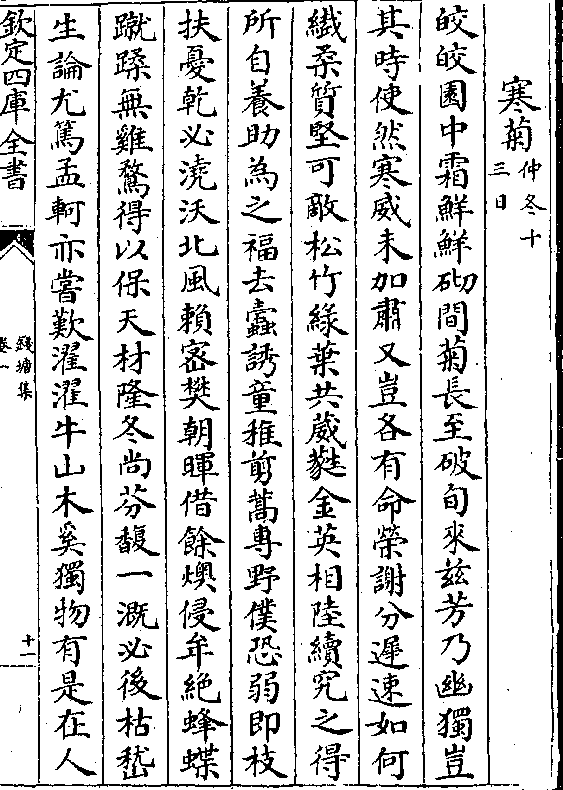 寒菊仲冬十三日
皎皎園中霜鮮鮮砌間菊長至破旬來茲芳乃幽獨豈
其時使然寒威未加肅又豈各有命榮謝分遲速如何
纎柔質堅可敵松竹緑葉共葳蕤金英相陸續究之得
所自養助為之福去蠧誘童稚剪蒿専野僕恐弱即枝
扶憂乾必澆沃北風頼宻樊朝暉借餘燠侵牟絶蜂蝶
蹴蹂無雞鶩得以保天材隆冬尚芬馥一溉必後枯嵇
生論尤篤孟軻亦嘗歎濯濯牛山木奚獨物有是在人
欽定四庫全書
錢塘集
卷一
十一